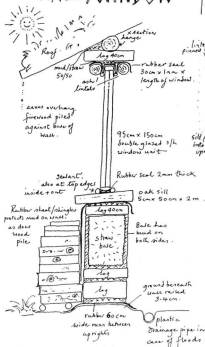 x section
hanger
Roof
log 40cm
mud/straw
50/50
ash
lintels
rubber seal
30cm x 1mm x
length of window.
eaves overhang
firewood piled
against base of
wall.
95cm x 150cm
double glazed s/h
window unit
sealant,
also at top edges
inside + out
Rubber seal 2mm thick
oak sill
5cm x 50cm x 2m.
Rubber sheet/shingles
protects mud on wall
as does
wood
pile
log 40cm
straw
bale
Bale has
mud on
both sides.
log
log
ground beneath
wall raised
3-4cm.
rubber 60cm
wide runs between
uprights
plastic
drainage pipe in
case of floods